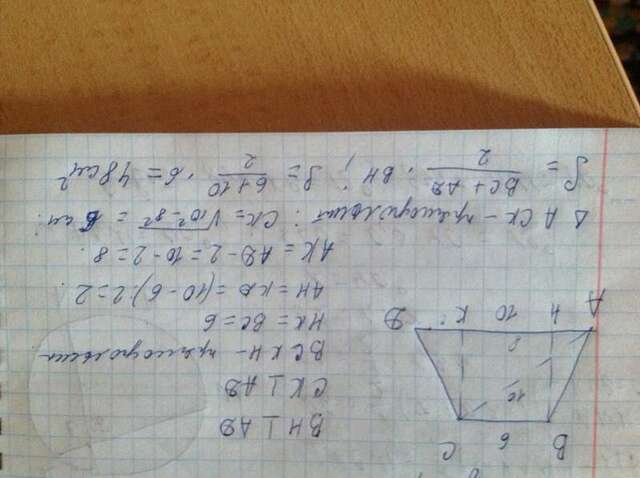 B 6 C
10
8
A H 10 K D
BH ⊥ AD
CK ⊥ AD
BCKH - прямоугольник
HK = BC = 6
AH = KD = (10 - 6) : 2 = 2.
AK = AD - 2 = 10 - 2 = 8.
Δ ACK - прямоугольн : CK = √10² - 8² = 6 см.
S = BC + AD / 2 · BH ; S = 6 + 10 / 2 · 6 = 48 см²